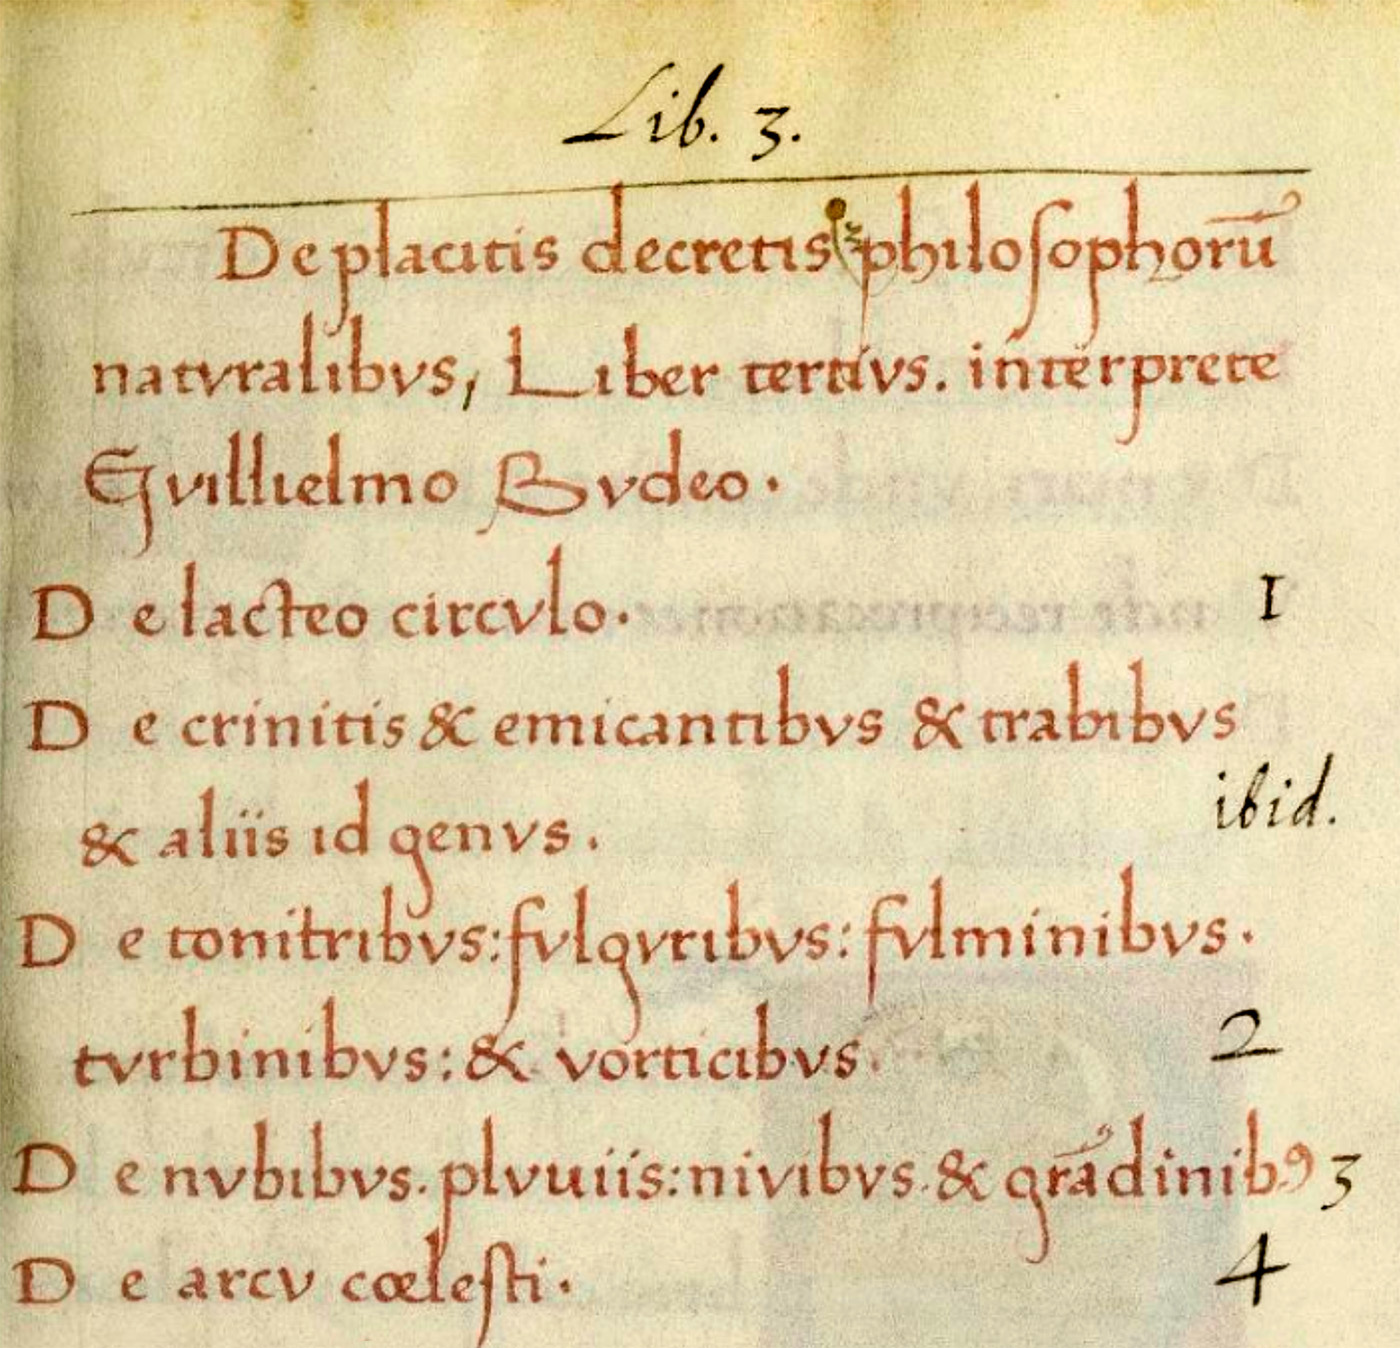 Lib. 3.
De placitis decretis philosophorū
natvralibvs, Liber tertivs. interprete
Gvillielmo Bvdeo.
De lacteo circvlo. 1
De crinitis & emicantibvs & trabibvs
& aliis id genvs. ibid.
De tonitribvs: fvlgvribvs: fvlminibvs.
tvrbinibvs: & vorticibvs. 2
De nvbibvs. plvuiis: nivibvs. & grādinibꝰ 3
De arcv cœlesti. 4